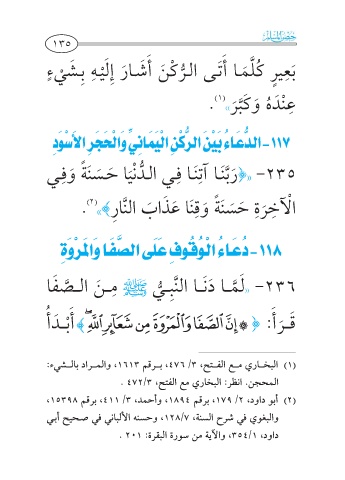 حصن المسلم
١٣٥
بَعِيرٍ كُلَّمَا أَتَى الرُّكْنَ أَشَارَ إِلَيْهِ بِشَيْءٍ
عِنْدَهُ وَكَبَّرَ»(١).
١١٧- الدُّعَاءُ بَيْنَ الرُّكْنِ الْيَمَانِيِّ وَالْحَجَرِ الْأَسْوَدِ
٢٣٥- «﴿رَبَّنَا آتِنَا فِي الدُّنْيَا حَسَنَةً وَفِي
الْآخِرَةِ حَسَنَةً وَقِنَا عَذَابَ النَّارِ﴾»(٢).
١١٨- دُعَاءُ الْوُقُوفِ عَلَى الصَّفَا وَالْمَرْوَةِ
٢٣٦- «لَمَّا دَنَا النَّبِيُّ ﷺ مِنَ الصَّفَا
قَرَأَ: ﴿۞ إِنَّ الصَّفَا وَالْمَرْوَةَ مِن شَعَائِرِ اللَّهِ ۖ﴾ أَبْدَأُ
(١) البخاري مع الفتح، ٣/ ٤٧٦، برقم ١٦١٣، والمراد بالشيء:
المحجن. انظر: البخاري مع الفتح، ٣/ ٤٧٢.
(٢) أبو داود، ٢/ ١٧٩، برقم ١٨٩٤، وأحمد، ٣/ ٤١١، برقم ١٥٣٩٨،
والبغوي في شرح السنة، ٧/ ١٢٨، وحسنه الألباني في صحيح أبي
داود، ١/ ٣٥٤، والآية من سورة البقرة: ٢٠١.